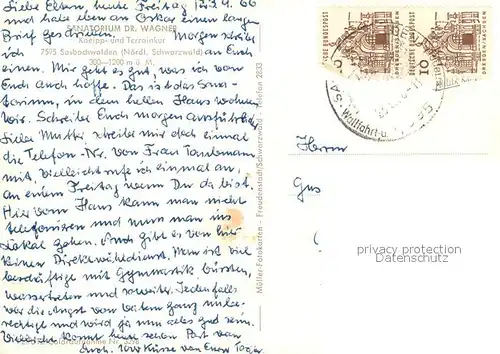 Liebe Eltern, heute Freitag, 23.9.66
und habe eben an Oskar einen langen
Brief geschrieben. Morgen schreibe
SANATORIUM DR. WAGNER
Kneipp- und Terrainkur
ich an Euch
7595 Sasbachwalden (Nördl. Schwarzwald)
300—1200 m ü. M.
einen. Mir geht es gut, was ich von
Euch auch hoffe. Das ist das Sana-
torium, in dem hellen Haus wohnen
wir. Schreibe Euch morgen ausführl.
Liebe Mutter schreibe mir doch einmal
die Telefon-Nr. von Frau
mit, vielleicht rufe ich einmal an,
an einem Freitag wenn Du da bist.
Hier vom Haus kann man nicht
telefonieren und muss man ins
Lokal gehen. Auch gibt es von hier
keinen Direktwähldienst. Man ist viel
beschäftigt mit Gymnastik, bürsten,
wassertreten und so weiter. Jedenfalls
war die Angst vom baden ganz unbe-
rechtigt und wird ja nun alles gut sein.
Vielleicht kommt heute schon Post von
Euch. Viele Küsse von Eurer
Müller-Fotokarten - Freudenstadt/Schwarzwald - Telefon 2833
DEUTSCHE BUNDESPOST
DRESDEN/SACHSEN
10
Wallfahrt-u.
Herrn
Gus
privacy protection
Watermark DDM